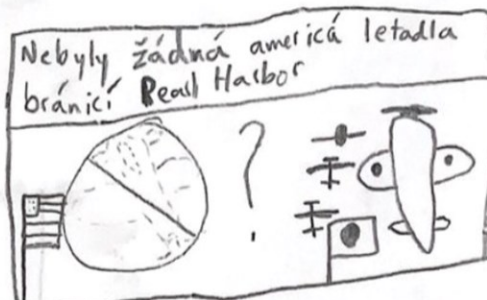 Nebyly žádná americá letadla
bránicí Pearl Harbor
?